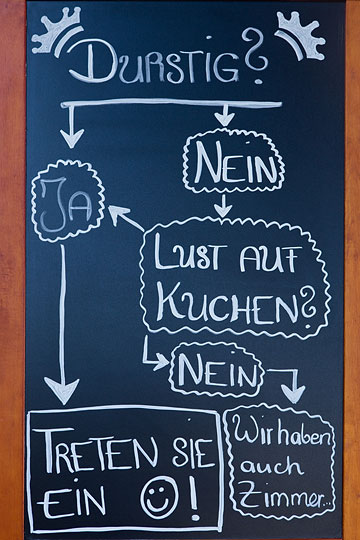 DURSTIG?
NEIN
JA
LUST AUF
KUCHEN?
NEIN
TRETEN SIE
EIN ☺!
Wir haben
auch
Zimmer...